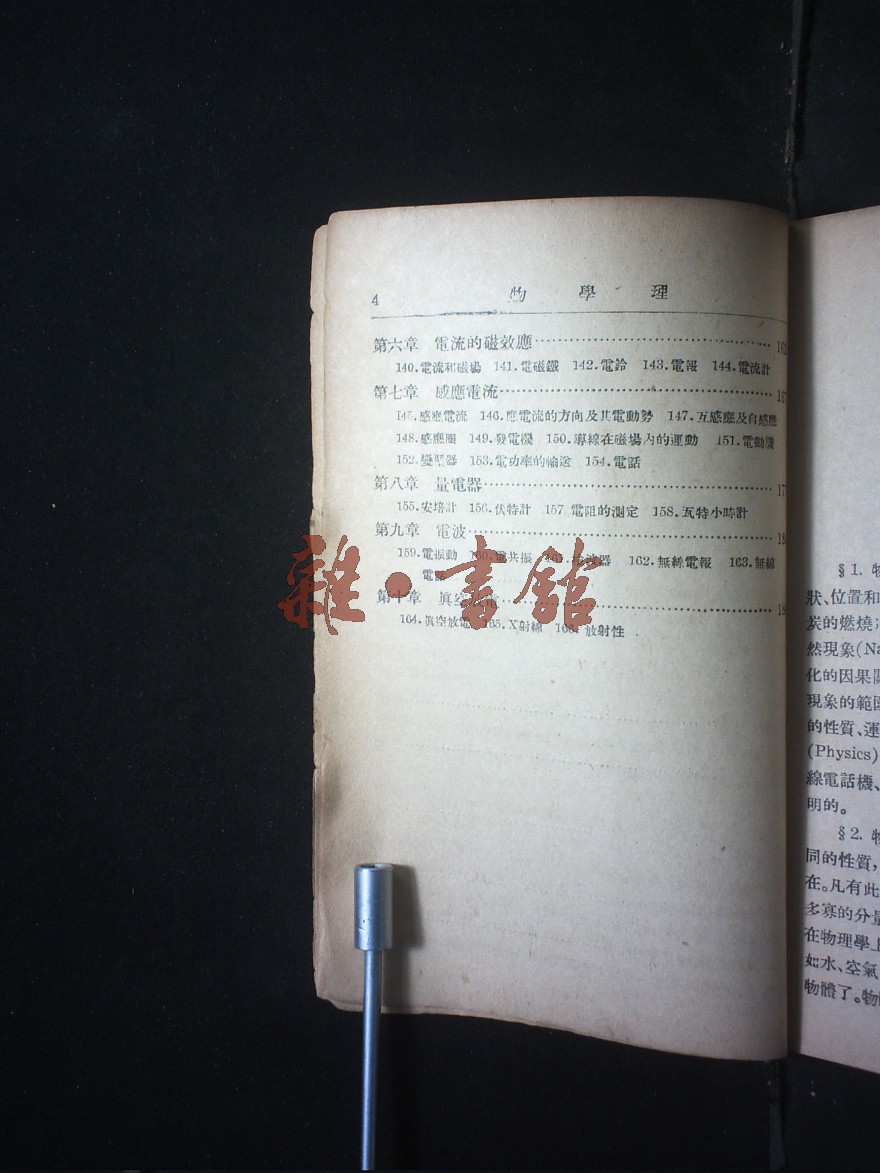 4 物學理
第六章 電流的磁效應
140.電流和磁場 141.電磁鐵 142.電鈴 143.電報 144.電流計
第七章 感應電流
145.感應電流 146.應電流的方向及其電動勢 147.互感應及自感應
148.感應圈 149.發電機 150.導線在磁場內的運動 151.電動機
152.變壓器 153.電功率的輸送 154.電話
第八章 量電器
155.安培計 156.伏特計 157.電阻的測定 158.瓦特小時計
第九章 電波
159.電振動 160.電共振 波器 162.無線電報 163.無線
電
第十章 眞空放電
164.眞空放電 165.X射線 166.放射性
雜·書館
§1.
狀、位置和
炭的燃燒
然現象(Na
化的因果
現象的範圍
的性質、運
(Physics)
線電話機、
明的。
§2.
同的性質,
在。凡有此
多寡的分量
在物理學上
如水、空氣
物體了。物